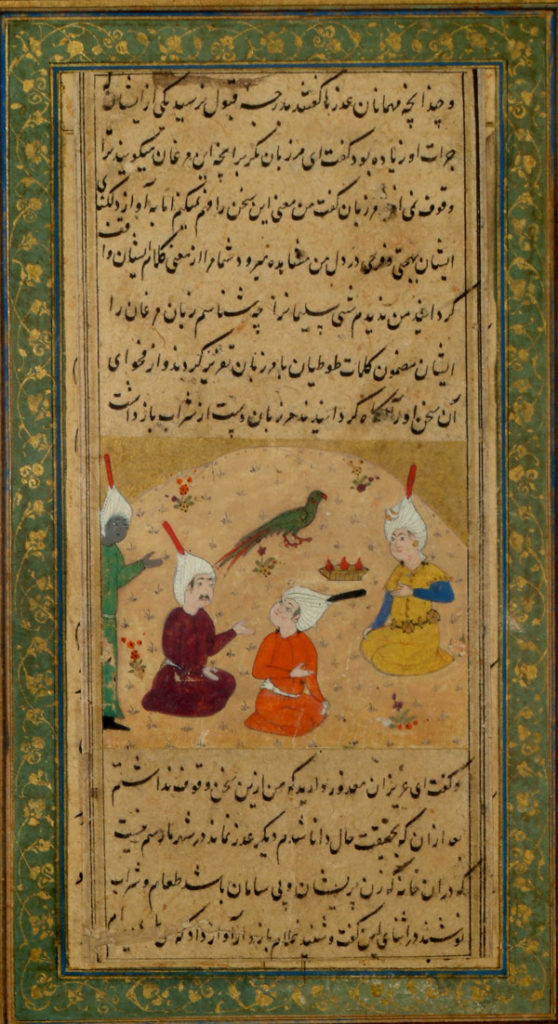 و چندانچه مهمانان عذرها گفتند بدرجه قبول نرسید یکی از ایشان
جرات او زیاده بود گفت ای مرزبان مگر برانچه این مرغان میگویند ترا
وقوفی نی مرزبان گفت من معنی این سخن را فهم نمیکنم اما به آواز دلکشای
ایشان بهجتی و فرحی در دل من مشاهده میرود شما مرا از معنی کلام ایشان واقف
گردانید من ندیدم شبی سلیمانرا چه شناسم زبان مرغان را
ایشان مضمون کلمات طوطیان با مرزبان تقریر کردند و از فحوای
آن سخن او را آگاه گردانیدند مرزبان دست از شراب باز داشت
و گفت ای عزیزان معذور دارید که من ازین سخن وقوف نداشتم
بعد ازان که بحقیقت حال دانا شدم دیگر عذر نماند در شهر ما رسم نیست
که دران خانه که زن پریشان و بی سامان باشد طعام و شراب
نوشند در اثنای این گفت و شنید غلام بازدار آواز داد که من